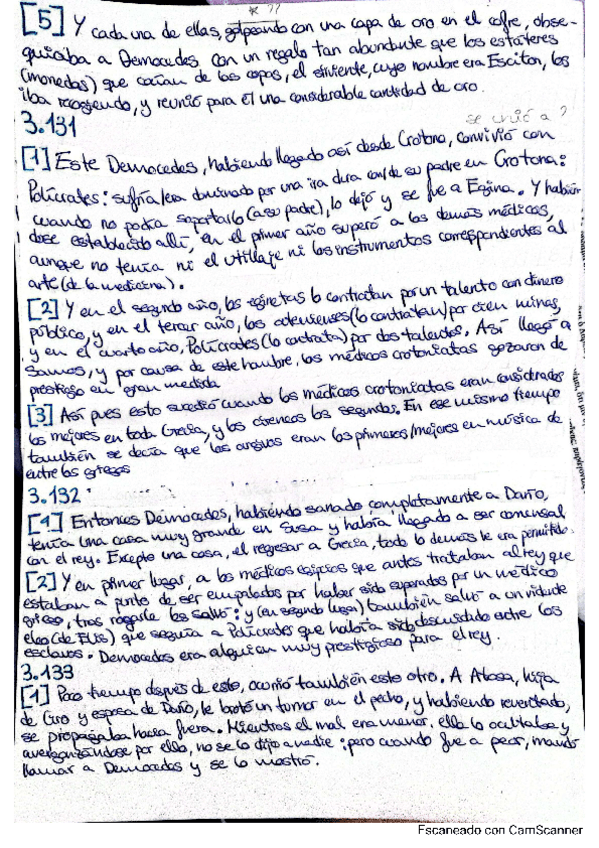 * ??
[5] Y cada una de ellas, golpeando con una copa de oro en el cofre, obse-
quiaba a Democedes con un regalo tan abundante que los estáteres
(monedas) que caían de las copas, el sirviente, cuyo nombre era Escitón, los
iba recogiendo, y reunió para él una considerable cantidad de oro.
3.131
se unió a ?
[1] Este Democedes, habiendo llegado así desde Crotona, convivió con
Polícrates: sufría/era dominado por una ira dura con/de su padre en Crotona:
cuando no podía soportarlo (a su padre), lo dejó y se fue a Egina. Y habién
dose establecido allí, en el primer año superó a los demás médicos,
aunque no tenía ni el utillaje ni los instrumentos correspondientes al
arte (de la medicina).
[2] Y en el segundo año, los eginetas lo contratan por un talento con dinero
público, y en el tercer año, los atenienses (lo contratan) por cien minas,
y en el cuarto año, Polícrates (lo contrata) por dos talentos. Así llegó a
Samos, y por causa de este hombre, los médicos crotoniatas gozaron de
prestigio en gran medida
[3] Así pues esto sucedió cuando los médicos crotoniatas eran considerados
los mejores en toda Grecia, y los cireneos los segundos. En ese mismo tiempo
también se decía que los argivos eran los primeros/mejores en música de
entre los griegos
3.132
[1] Entonces Democedes, habiendo sanado completamente a Darío,
tenía una casa muy grande en Susa y había llegado a ser comensal
con el rey. Excepto una cosa, el regresar a Grecia, todo lo demás le era permitido.
[2] Y en primer lugar, a los médicos egipcios que antes trataban al rey que
estaban a punto de ser empalados por haber sido superados por un médico
griego, tras rogarle les salvó: y (en segundo lugar) también salvó a un vidente
eleo (de Elis) que seguía a Polícrates que había sido descuidado entre los
esclavos. Democedes era alguien muy prestigioso para el rey.
3.133
[1] Poco tiempo después de esto, ocurrió también este otro. A Atosa, hija
de Ciro y esposa de Darío, le brotó un tumor en el pecho, y habiendo reventado,
se propagaba hacia fuera. Mientras el mal era menor, ella lo ocultaba y
avergonzándose por ello, no se lo dijo a nadie: pero cuando fue a peor, mandó
llamar a Democedes y se lo mostró.
Escaneado con CamScanner